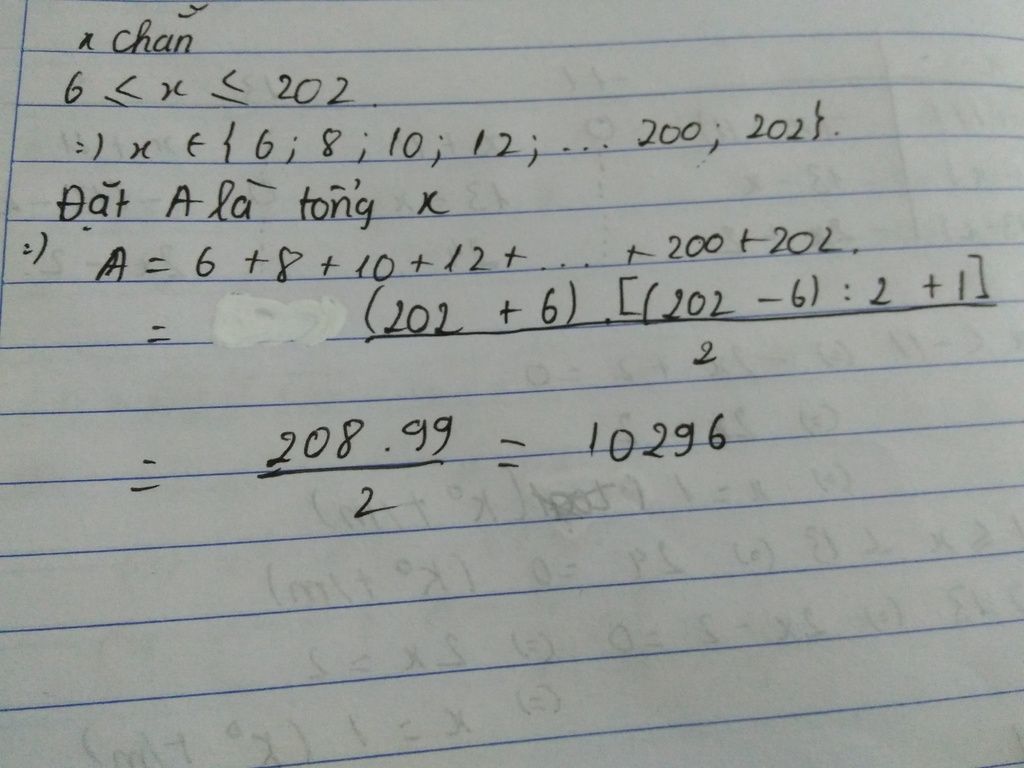 x chẵn
6 ≤ x ≤ 202.
=) x ∈ { 6 ; 8 ; 10 ; 12 ; ... 200 ; 202}.
Đặt A là tổng x
=) A = 6 + 8 + 10 + 12 + ... + 200 + 202.
= (202 + 6) . [(202 - 6) : 2 + 1]
2
= 208 . 99 = 10296
2